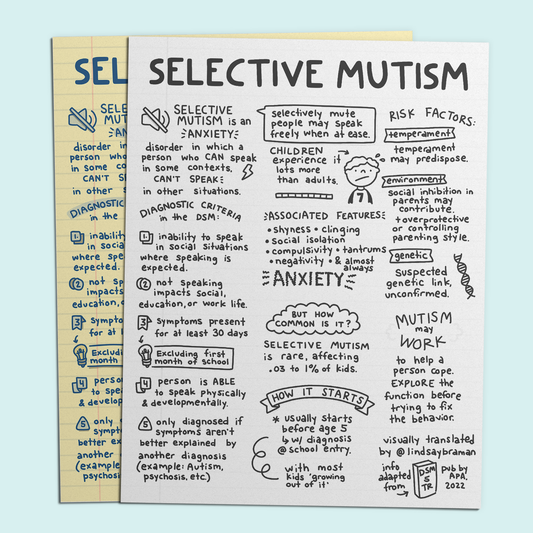 SELECTIVE MUTISM
SELECTIVE
MUTISM is an
ANXIETY
disorder in which a
person who CAN speak
in some contexts,
CAN'T SPEAK
in other situations.
DIAGNOSTIC CRITERIA
in the DSM:
1 inability to speak
in social situations
where speaking is
expected.
2 not speaking
impacts social,
education, or work life.
3 symptoms present
for at least 30 days
Excluding first
month of school
4 person is ABLE
to speak physically
& developmentally.
5 only diagnosed if
symptoms aren't
better explained by
another diagnosis
(example: Autism,
psychosis, etc.)
selectively mute
people may speak
freely when at ease.
CHILDREN
experience it
lots more
than adults.
7
ASSOCIATED FEATURES
• shyness • clinging
• social isolation
• compulsivity • tantrums
• negativity • & almost
always
ANXIETY
BUT HOW
COMMON IS IT?
SELECTIVE MUTISM
is rare, affecting
.03 to 1% of kids.
HOW IT STARTS
* usually starts
before age 5
↳ w/ diagnosis
@ school entry.
with most
kids 'growing
out of it'
RISK FACTORS:
temperament
temperament
may predispose.
environment
social inhibition in
parents may
contribute.
+ overprotective
or controlling
parenting style.
genetic
suspected
genetic link,
unconfirmed.
MUTISM
may
WORK
to help a
person cope.
EXPLORE the
function before
trying to fix
the behavior.
visually translated
by @lindsaybraman
info
adapted
from
DSM
5
TR
pub by
APA.
2022
SEL
SELE
MU
AN
disorder in
person who
in some co
CAN'T
in other si
DIAGNOSTIC
in the
1 inabili
in soci
where spea
expected.
2 not
impac
education, o
3 sympto
for at l
Excludin
month o
4 perso
to spe
& develop
5 only d
sympto
better exp
another di
(example:
psychosi